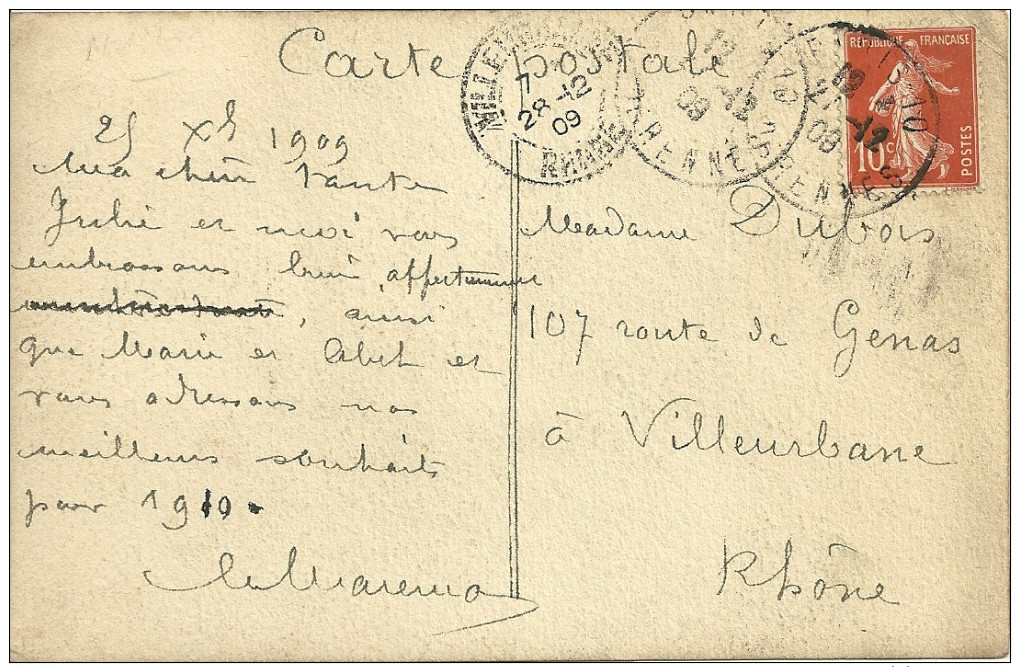 Carte postale
VILLEURBANNE
7
28-12
09
RHONE
13 10
09
VARENNE
REPUBLIQUE FRANÇAISE
10c
POSTES
25 Xbre 1909
Ma chère tante
Julie et moi vous
embrassons bien affectueusement
, ainsi
que Marie et Abel et
vous adressons nos
meilleurs souhaits
pour 1910.
Madame Dubois
107 route de Genas
à Villeurbane
Rhône